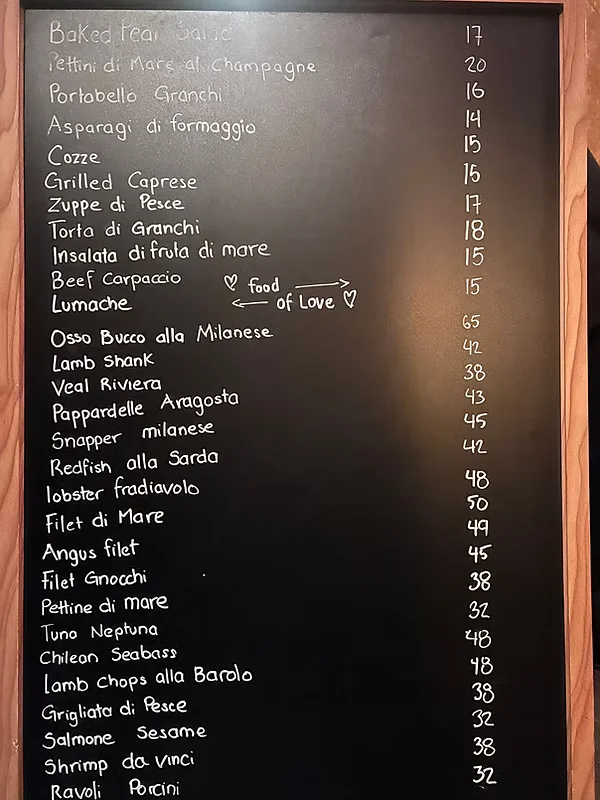 Baked Pear Salad 17
Pettini di Mare al champagne 20
Portabello Granchi 16
Asparagi di formaggio 14
Cozze 15
Grilled Caprese 15
Zuppe di Pesce 17
Torta di Granchi 18
Insalata di fruta di mare 15
Beef Carpaccio ♡ food → 15
Lumache ← of Love ♡
Osso Bucco alla Milanese 65
Lamb Shank 42
Veal Riviera 38
Pappardelle Aragosta 43
Snapper milanese 45
Redfish alla Sarda 42
lobster fradiavolo 48
Filet di Mare 50
Angus filet 49
Filet Gnocchi 45
Pettine di mare 38
Tuna Neptuna 32
Chilean Seabass 48
lamb chops alla Barolo 48
Grigliata di Pesce 38
Salmone Sesame 32
Shrimp da vinci 38
Ravoli Porcini 32